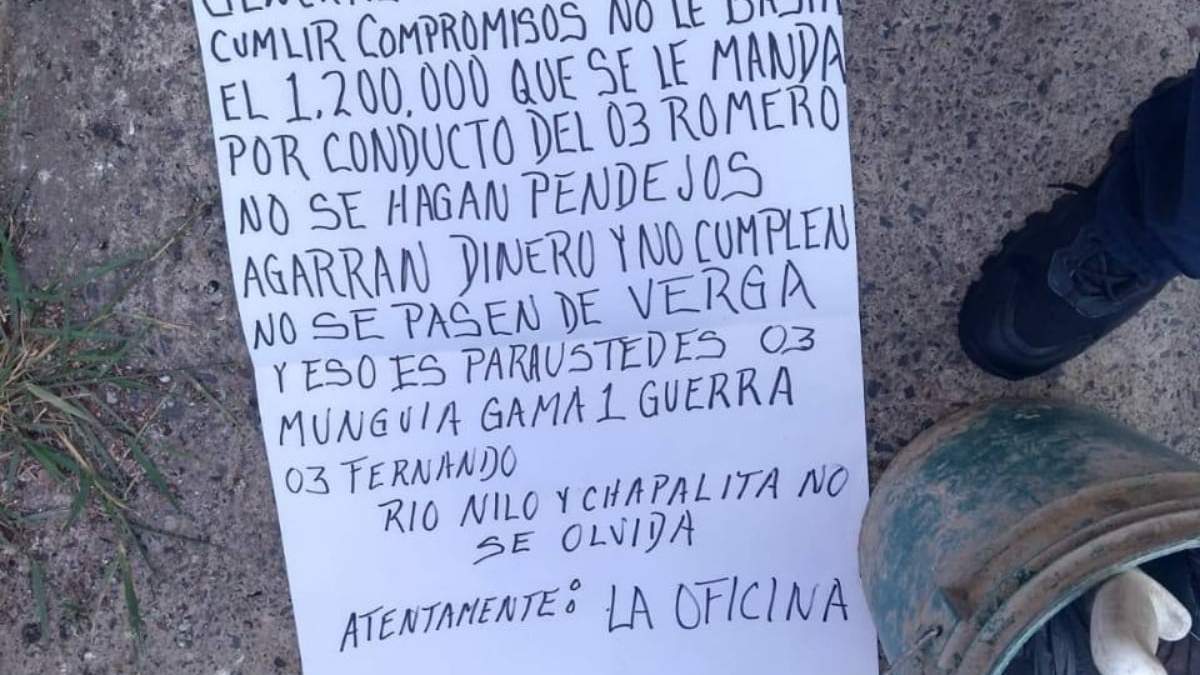 CUMLIR COMPROMISOS NO LE BASTA
EL 1,200,000 QUE SE LE MANDA
POR CONDUCTO DEL 03 ROMERO
NO SE HAGAN PENDEJOS
AGARRAN DINERO Y NO CUMPLEN
NO SE PASEN DE VERGA
Y ESO ES PARA USTEDES 03
MUNGUIA GAMA 1 GUERRA
03 FERNANDO
RIO NILO Y CHAPALITA NO
SE OLVIDA
ATENTAMENTE: LA OFICINA